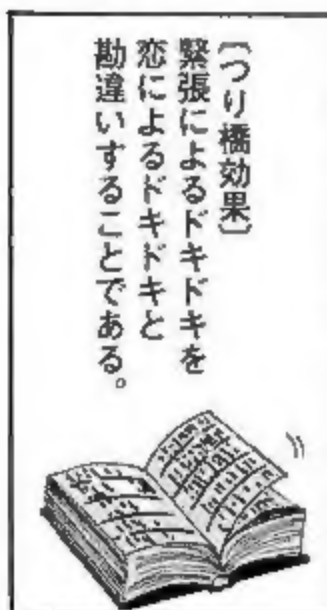 〔つり橋効果〕
緊張によるドキドキを
恋によるドキドキと
勘違いすることである。